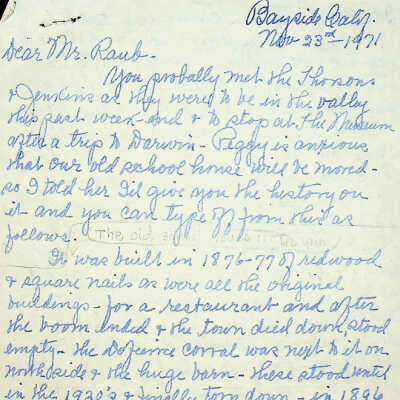 Bayside Calif.
Nov 23rd - 1971
Dear Mr. Raub -
You probally met the Thorsons
& Jenkins as they were to be in the valley
this past week-end & to stop at The Museum
after a trip to Darwin - Peggy is anxious
that our old school house will be moved -
so I told her I'd give you the history on
it and you can type off from this as
follows. The old
It was built in 1876-77 of redwood
& square nails as were all the original
buildings - for a restaurant and after
the boom ended & the town died down, stood
empty - the Defience Corral was next to it on
north side & the huge barn - these stood until
in the 1920's & finally torn down - in 1896